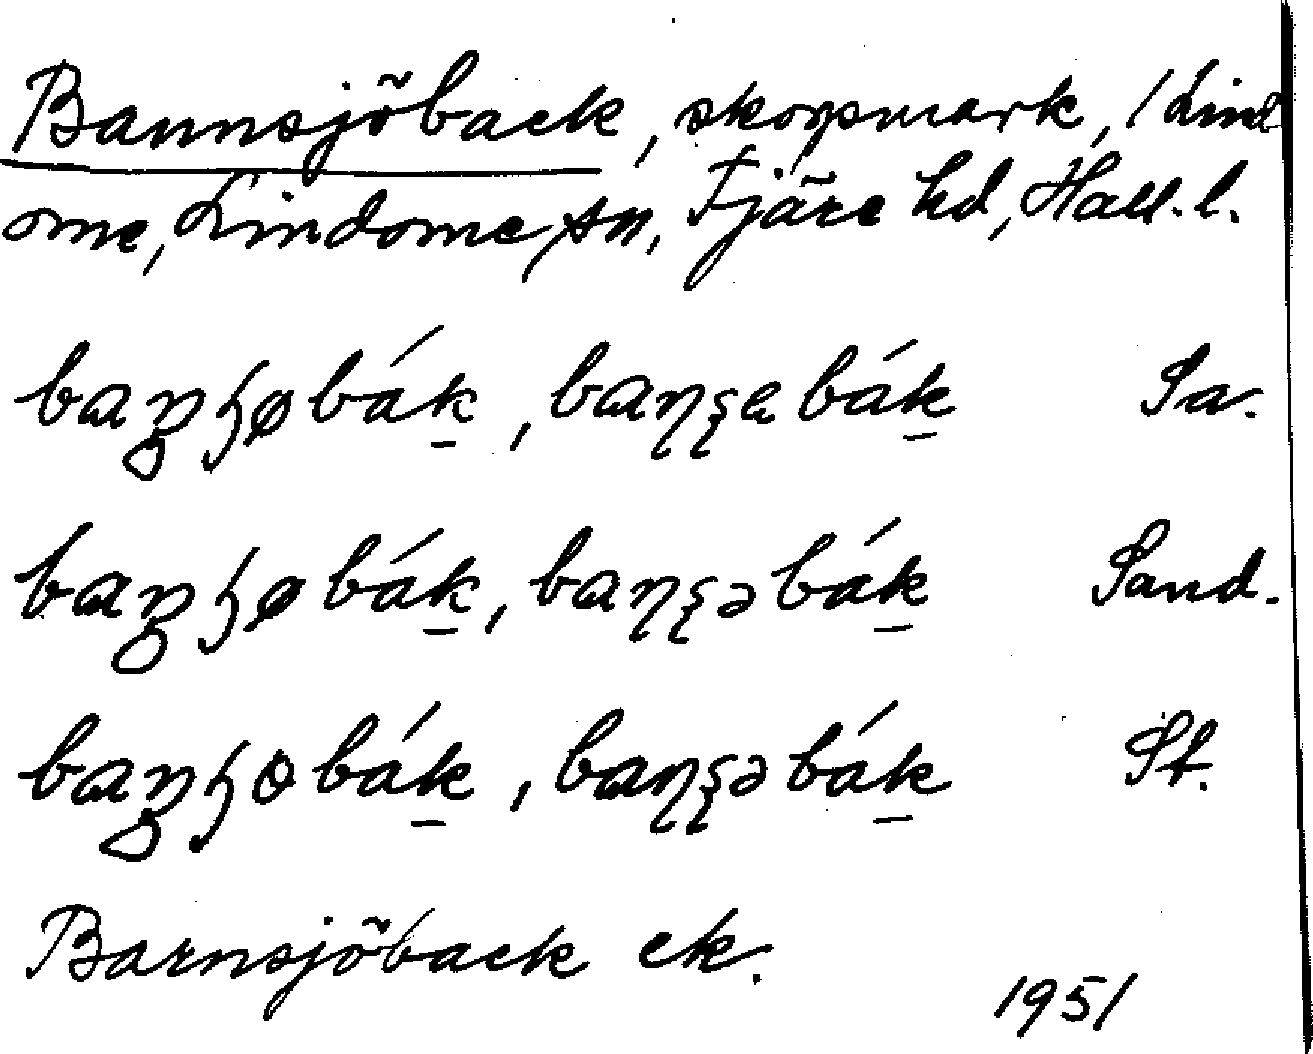 Bannsjöback, skogsmark, / Lind
ome, Lindome sn, Fjäre hd, Hall. l.
baŋɧøbák̲, baɳʂebák̲ Sa.
baŋɧøbák̲, baɳʂəbák̲ Sand.
baŋɧɵbák̲, baɳʂəbák̲ St.
Barnsjöback ek.
1951